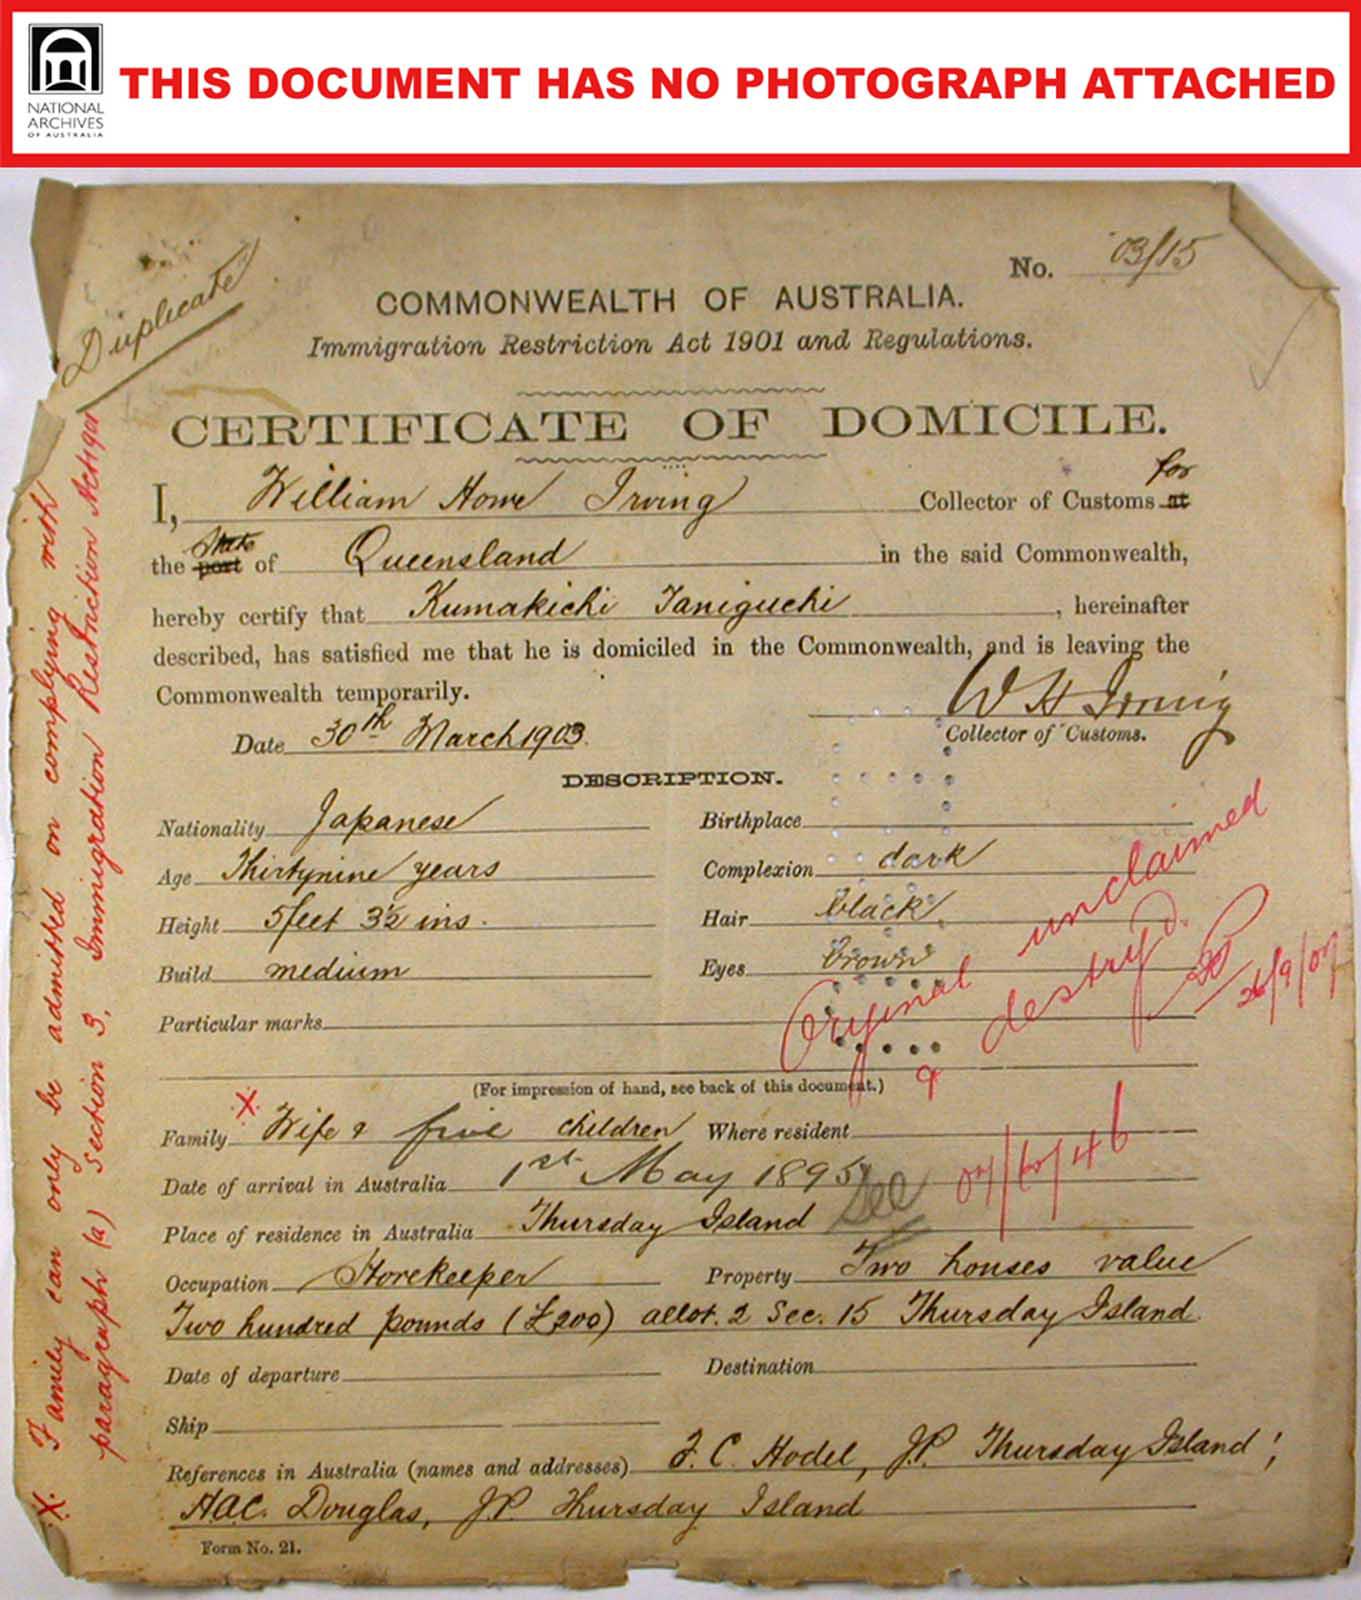 NATIONAL
ARCHIVES
OF AUSTRALIA
THIS DOCUMENT HAS NO PHOTOGRAPH ATTACHED
Duplicate
No. 03/15
COMMONWEALTH OF AUSTRALIA.
Immigration Restriction Act 1901 and Regulations.
CERTIFICATE OF DOMICILE.
for
I, William Howe Irving Collector of Customs at
State
the port of Queensland in the said Commonwealth,
hereby certify that Kumakichi Taniguchi, hereinafter
described, has satisfied me that he is domiciled in the Commonwealth, and is leaving the
Commonwealth temporarily.
W H Irving
Date 30th March 1903.
Collector of Customs.
DESCRIPTION.
Nationality Japanese
Birthplace
Age Thirtynine years
Complexion dark
Height 5 feet 3½ ins.
Hair black
Build medium
Eyes brown
Particular marks
Original unclaimed
& destryd.
26/9/07
(For impression of hand, see back of this document.)
Family X Wife & five children Where resident
Date of arrival in Australia 1st May 1895
See
Place of residence in Australia Thursday Island
Occupation Storekeeper Property Two houses value
Two hundred pounds (£200) allot. 2 Sec. 15 Thursday Island.
Date of departure Destination
Ship
References in Australia (names and addresses) F. C. Hodel, J.P. Thursday Island;
H.A.C. Douglas, J.P. Thursday Island
Form No. 21.
X. Family can only be admitted on complying with
paragraph (a) Section 3, Immigration Restriction Act 1901